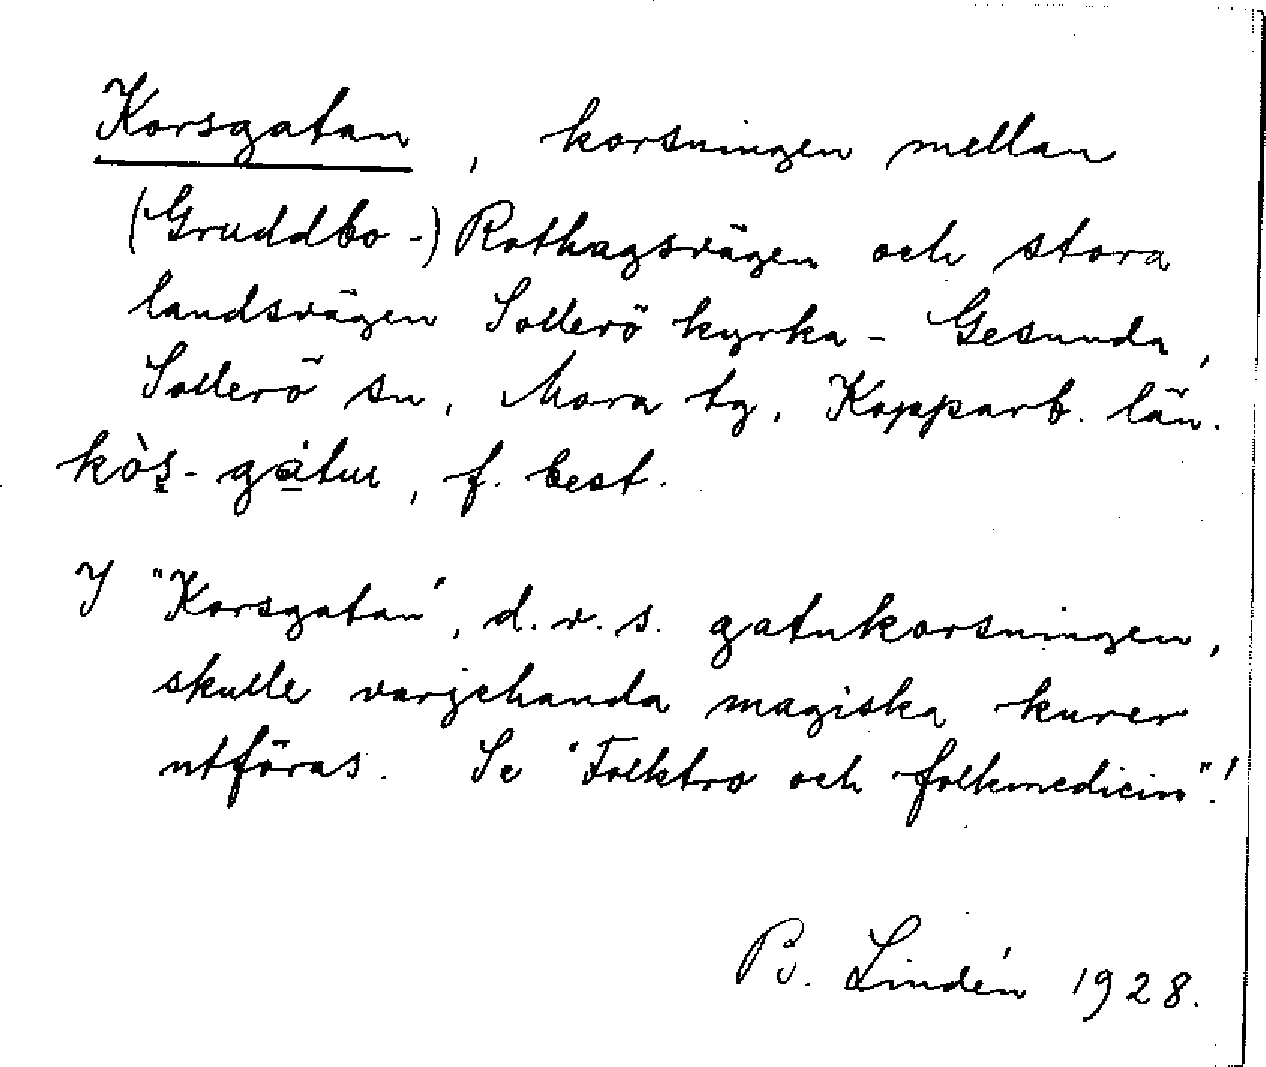 Korsgatan, korsningen mellan
(Gruddbo-) Rothagsvägen och stora
landsvägen Sollerö kyrka - Gesunda,
Sollerö sn, Mora tg, Kopparb. län.
kòs-gátur, f. best.
I "Korsgatan", d.v.s. gatukorsningen,
skulle varjehanda magiska kurer
utföras. Se "Folktro och folkmedicin".!
B. Lindén 1928.